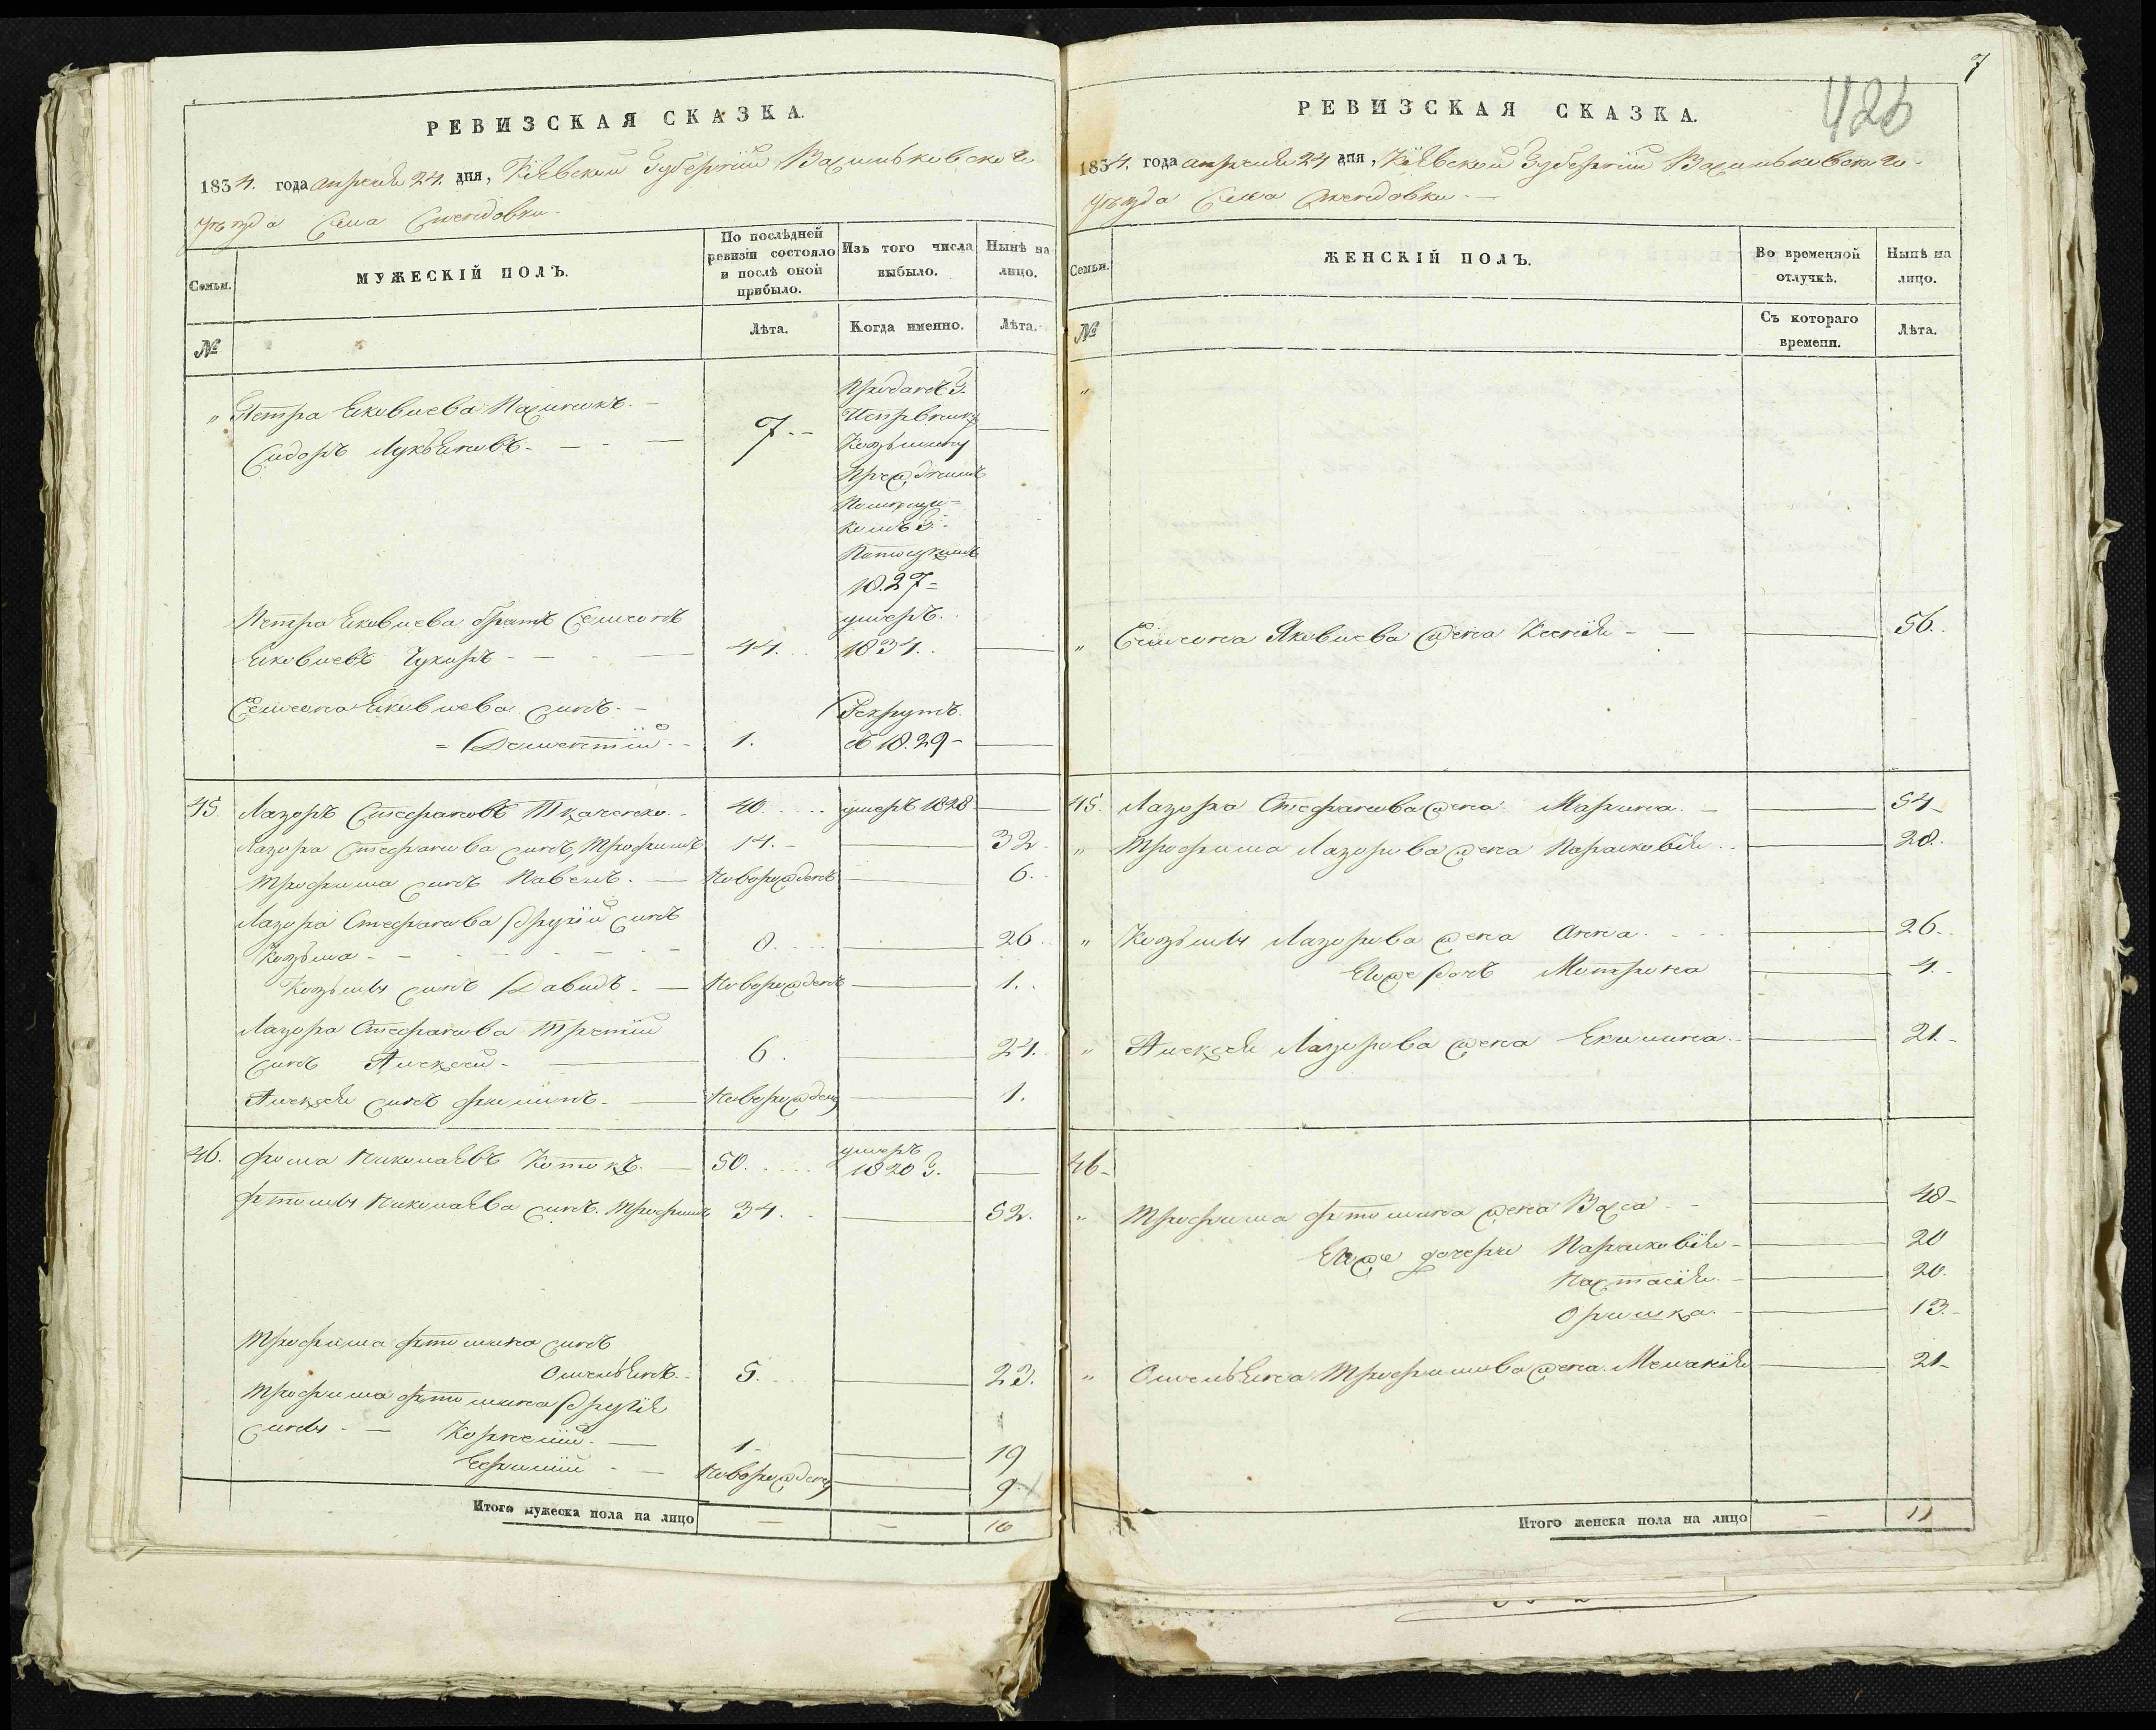 РЕВИЗСКАЯ СКАЗКА.
1834. года апреля 24. дня, Кіевской Губерніи Васильковскаго
уѣзда Села
Семьи.
МУЖЕСКІЙ ПОЛЪ.
По послѣдней ревизіи состояло и послѣ оной прибыло.
Изъ того числа выбыло.
Нынѣ на лицо.
№
Лѣта.
Когда именно.
Лѣта.
" Петра Яковлева
Сидоръ Лукьяновъ 7
Проданъ Г.
Исправнику
Козьмину
Помещи=
комъ Г.
Потоцкимъ
1827
Петра Яковлева братъ Семеонъ
Яковлевъ 44. умеръ. 1834.
Семеона Яковлева сынъ
Дементій 1. Рекрутъ. въ 1829
45 Лазоръ Стефановъ Ткаченко 40. умеръ 1828
Лазора Стефанова сынъ, Трофимъ 14. 32
Трофима сынъ Павелъ. Новорожденъ 6.
Лазора Стефанова Другій сынъ
Козьма 8. 26.
Козьмы сынъ Давидъ. Новорожденъ 1.
Лазора Стефанова Третій
сынъ Алексей 6. 24.
Алексея сынъ Филипъ. Новорожден 1.
46. Фома Николаевъ 50. умеръ 1820 Г.
Николаева сынъ. Трофимъ 34. 52.
Трофима сынъ
Омельянъ. 5. 23.
Трофима Другія
сыны Корнелій 1 19
Ефимій Новорожден 9
Итого мужеска пола на лицо 10
7
426
РЕВИЗСКАЯ СКАЗКА.
1834. года апреля 24 дня, Кіевской Губерніи Васильковскаго
уѣзда Села
Семьи.
ЖЕНСКІЙ ПОЛЪ.
Во временной отлучкѣ.
Нынѣ на лицо.
№
Съ котораго времени.
Лѣта.
"
" Семеона Яковлева жена Ксенія 56.
45. Лазора Стефанова жена Марина. 54
" Трофима Лазорова жена Парасковія 28.
" Козьмы Лазорова жена Анна 26.
Егоже дочь Мотрона 4.
" Алексея Лазорова жена Екилина 21
46
" Трофима жена Васса 48
Егоже дочери Парасковія 20
Настасія 20.
Оришка 13.
" Омельяна Трофимова жена Меланія 21
Итого женска пола на лицо 11